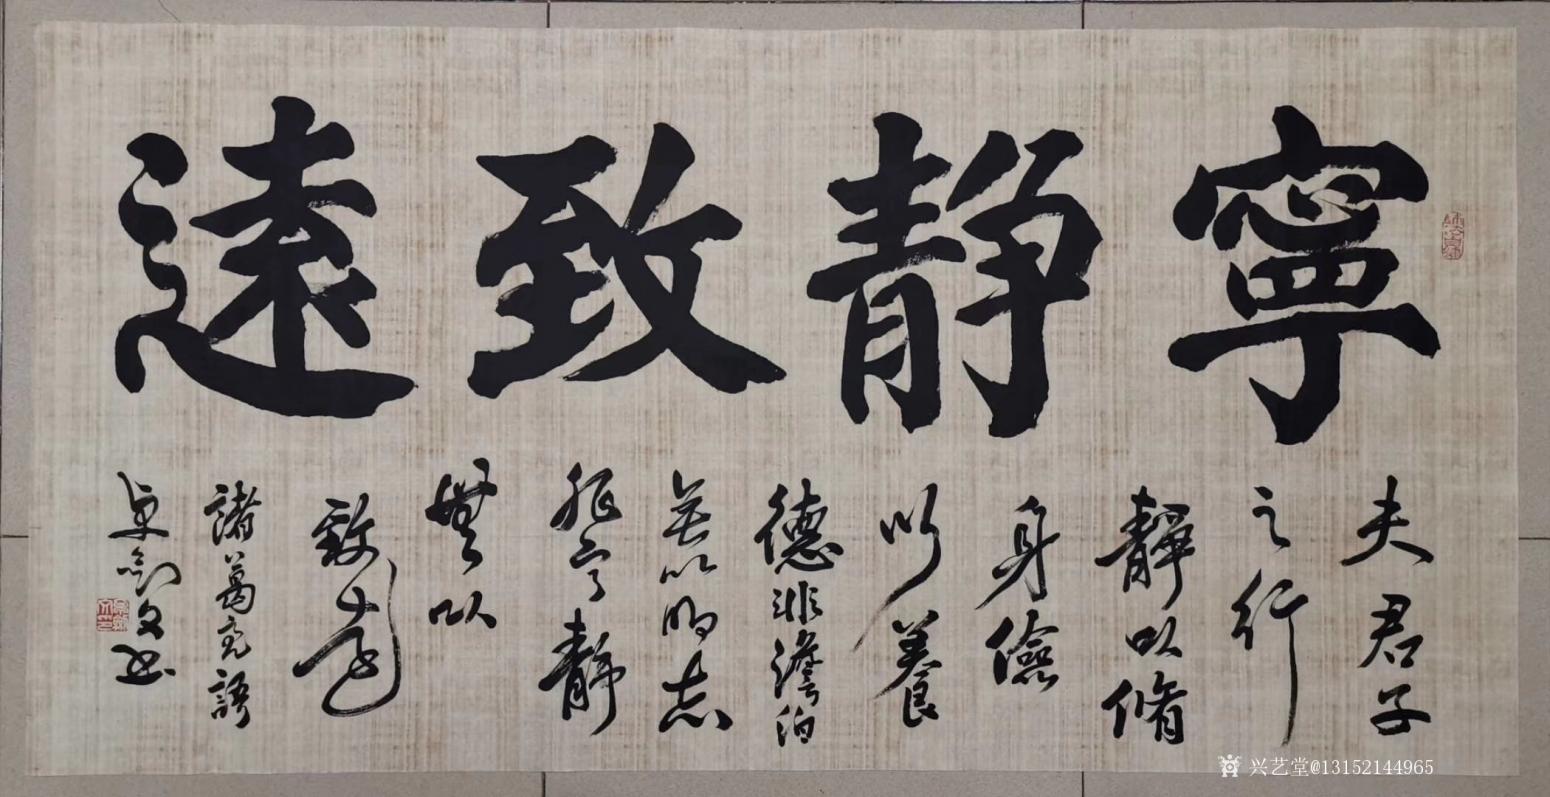 寧靜致遠
夫君子
之行
靜以脩
身儉
以養
德非澹泊
無以明志
非寧靜
無以
致遠
諸葛亮語
兴艺堂@13152144965